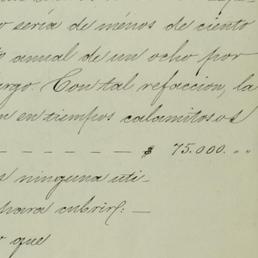 o sería de ménos de ciento
o anual de un ocho por
rgo. Con tal refaccion, la
n en tiempos calamitosos
$ 75.000. „
s ninguna uti-
para cubrir: —
o que